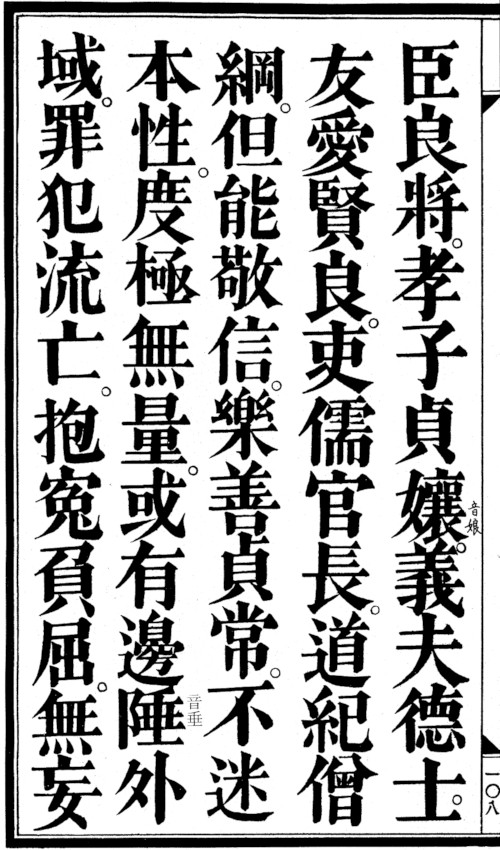 臣良將。孝子貞孃音娘。義夫德士。
友愛賢良。吏儒官長。道紀僧
綱。但能敬信。樂善貞常。不迷
本性。度極無量。或有邊陲音垂外
域。罪犯流亡。抱冤負屈。無妄
一〇八